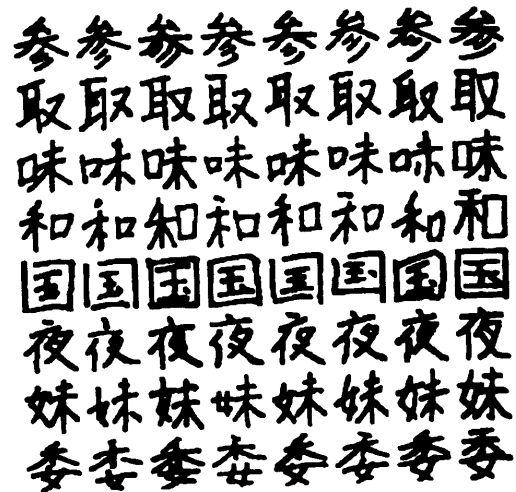 参参参参参参参参
取取取取取取取取
味味味味味味味味
和和和和和和和和
国国国国国国国国
夜夜夜夜夜夜夜夜
妹妹妹妹妹妹妹妹
委委委委委委委委